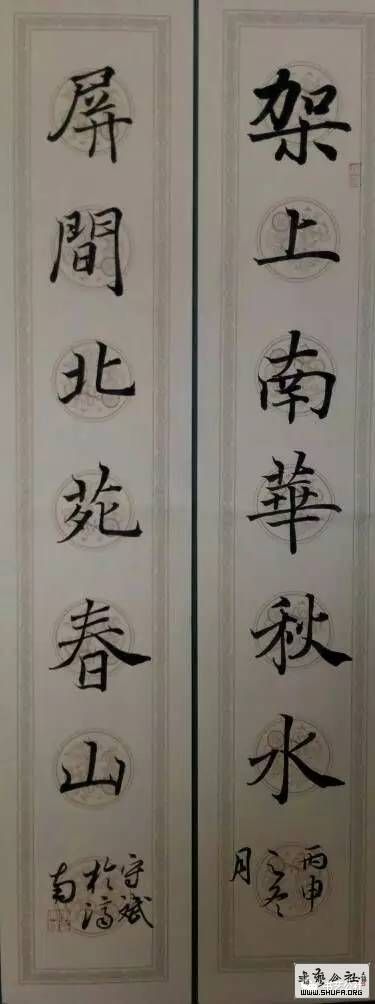 架上南華秋水
丙申
之冬
月
屏間北苑春山
守斌
於濟
南
书艺公社
WWW.SHUFA.ORG